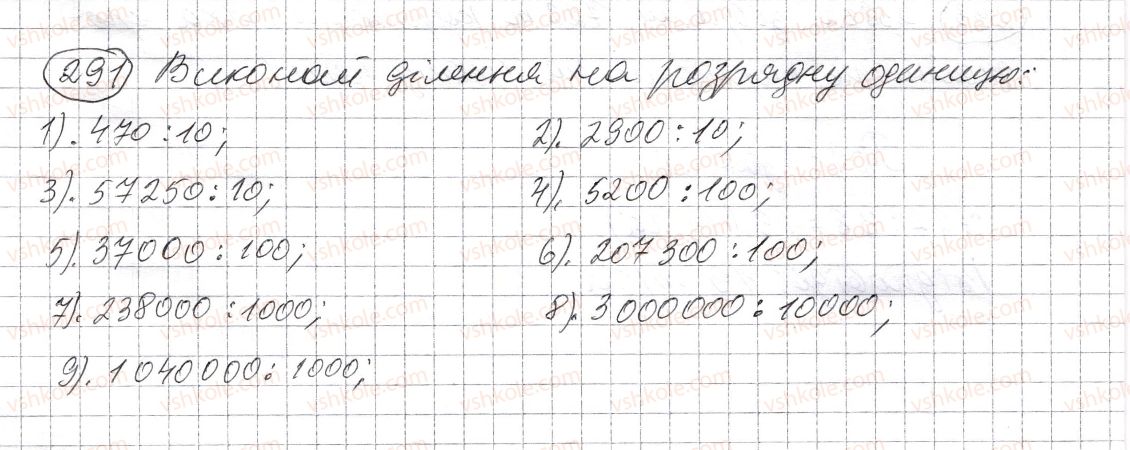 291 Виконай ділення на розрядну одиницю:
1). 470 : 10; 2). 2900 : 10;
3). 57250 : 10; 4). 5200 : 100;
5). 37000 : 100; 6). 207300 : 100;
7). 238000 : 1000; 8). 3000000 : 10000;
9). 1040000 : 1000;